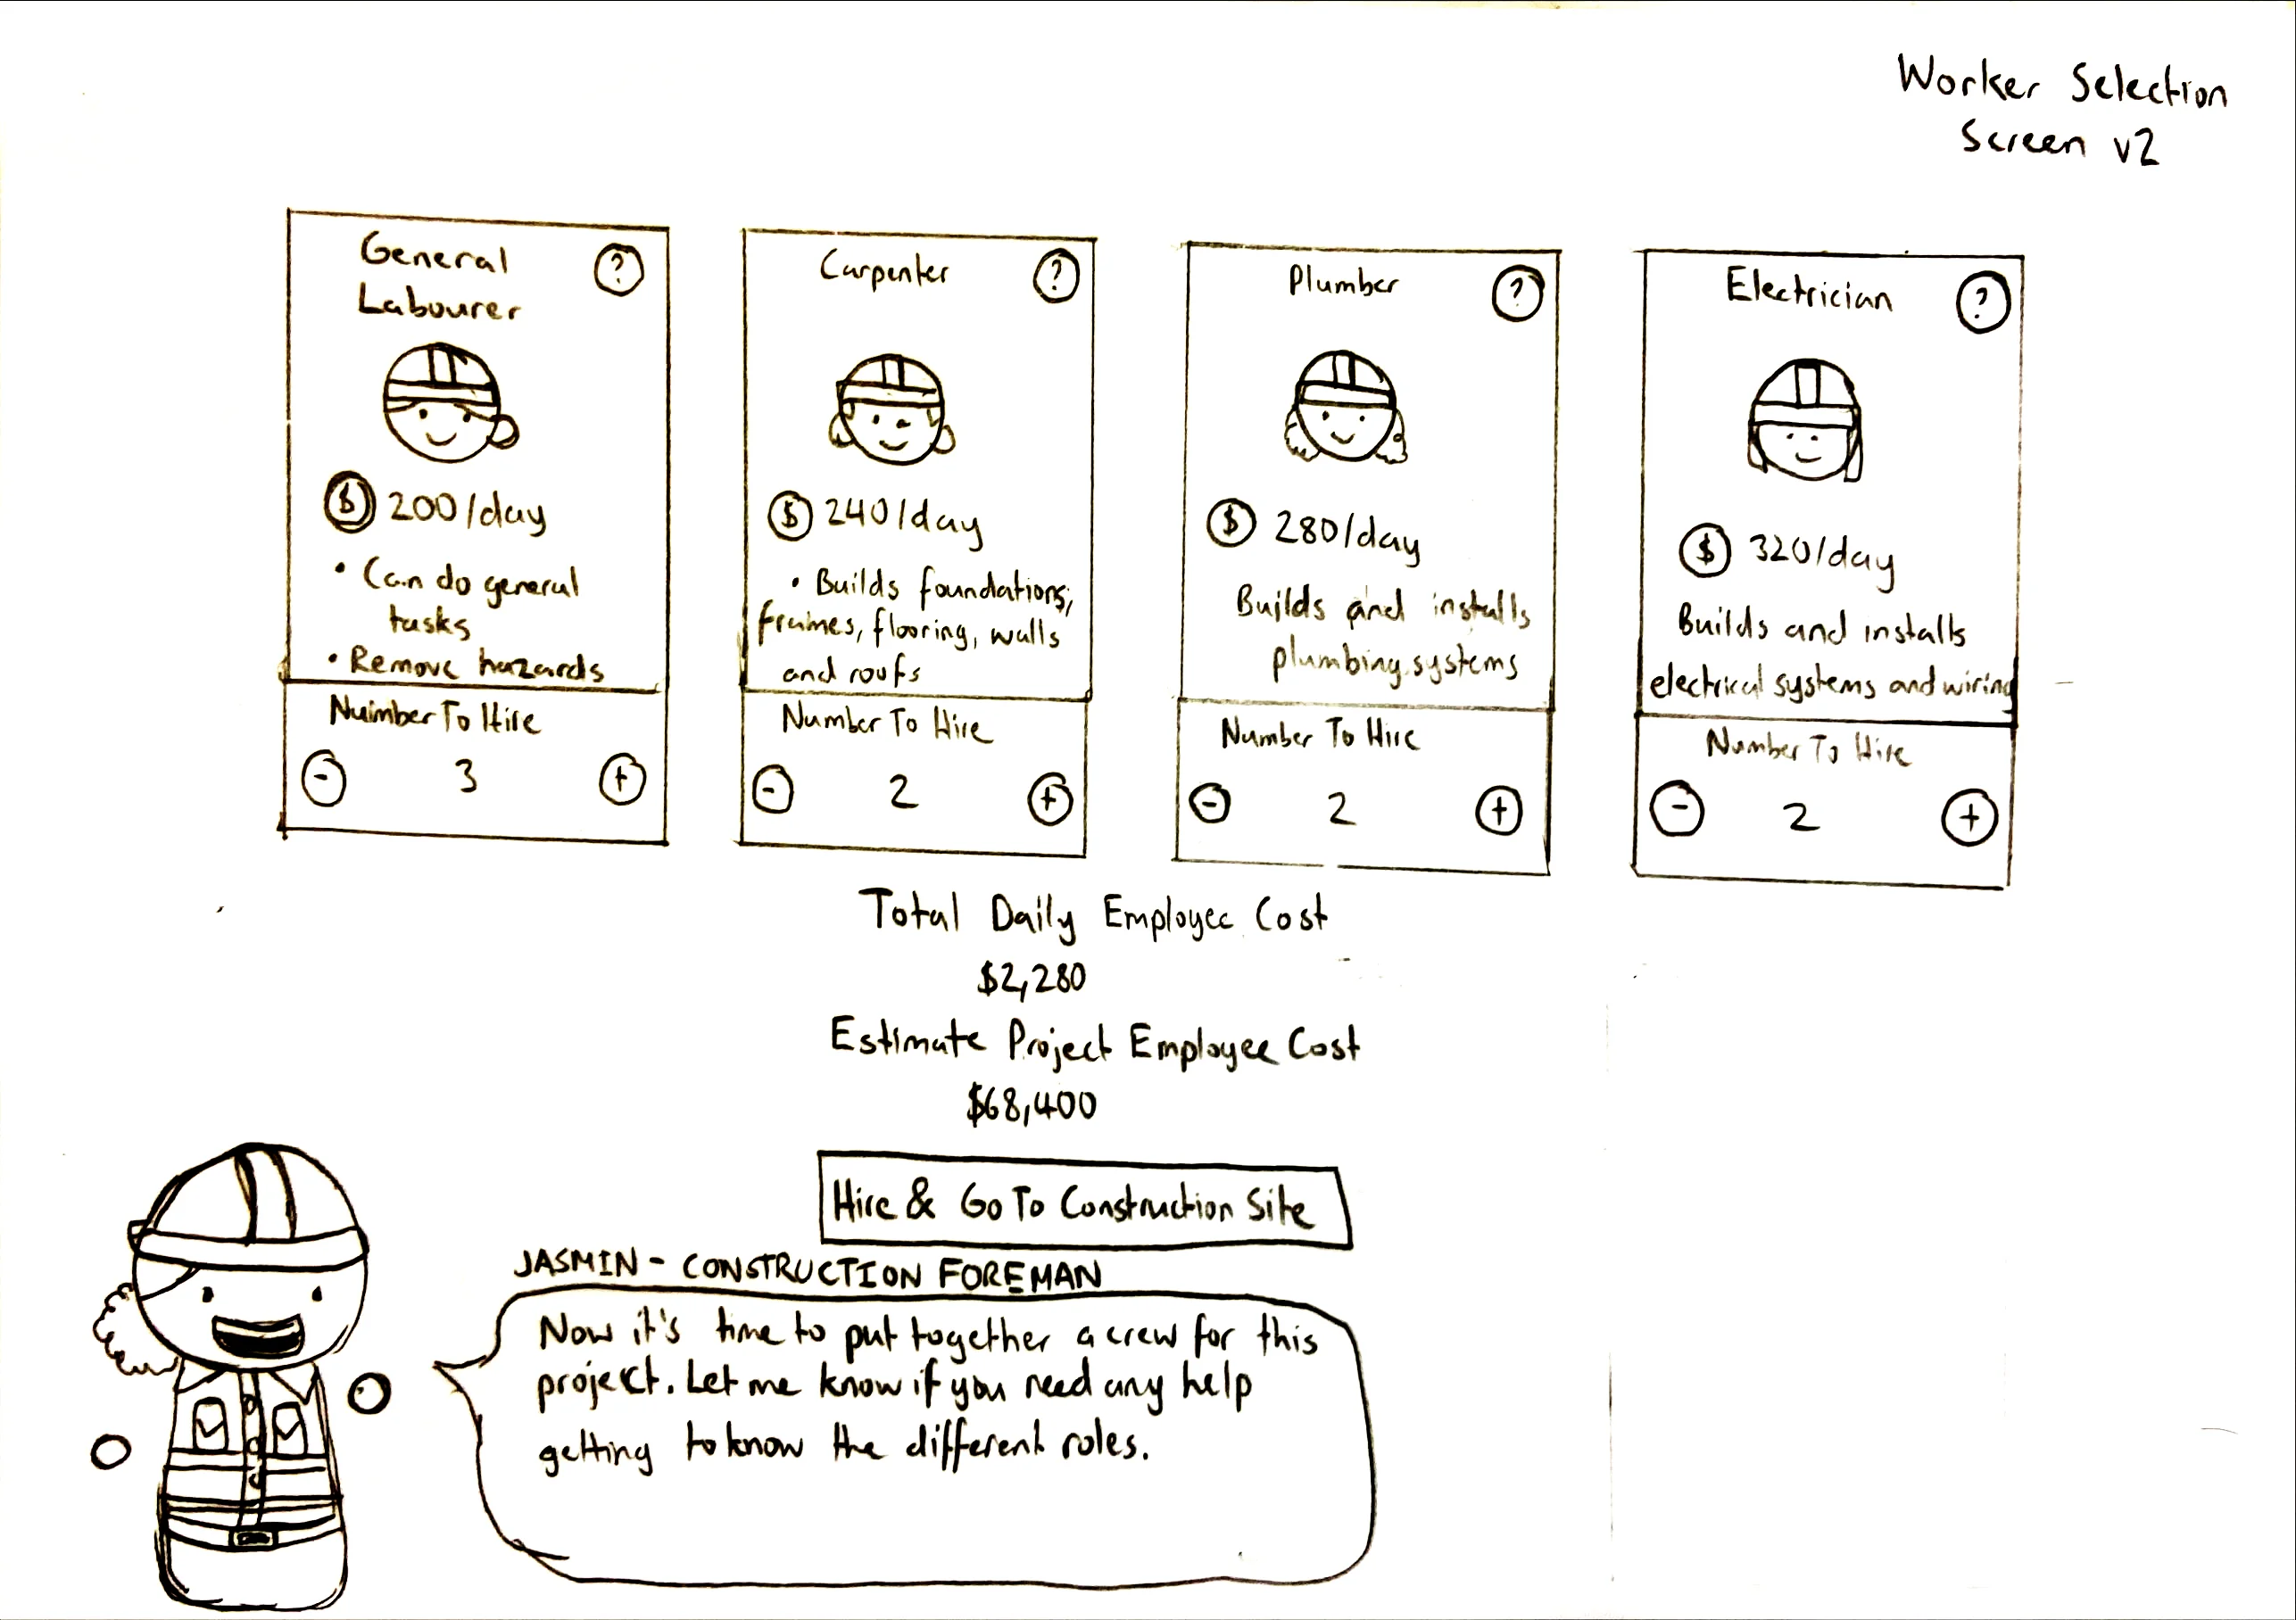 Worker Selection
Screen v2
General
Labourer
?
$ 200/day
• Can do general
tasks
• Remove hazards
Number To Hire
- 3 +
Carpenter
?
$ 240/day
• Builds foundations,
frames, flooring, walls
and roofs
Number To Hire
- 2 +
Plumber
?
$ 280/day
Builds and installs
plumbing systems
Number To Hire
- 2 +
Electrician
?
$ 320/day
Builds and installs
electrical systems and wiring
Number To Hire
- 2 +
Total Daily Employee Cost
$2,280
Estimate Project Employee Cost
$68,400
Hire & Go To Construction Site
JASMIN - CONSTRUCTION FOREMAN
Now it's time to put together a crew for this
project. Let me know if you need any help
getting to know the different roles.